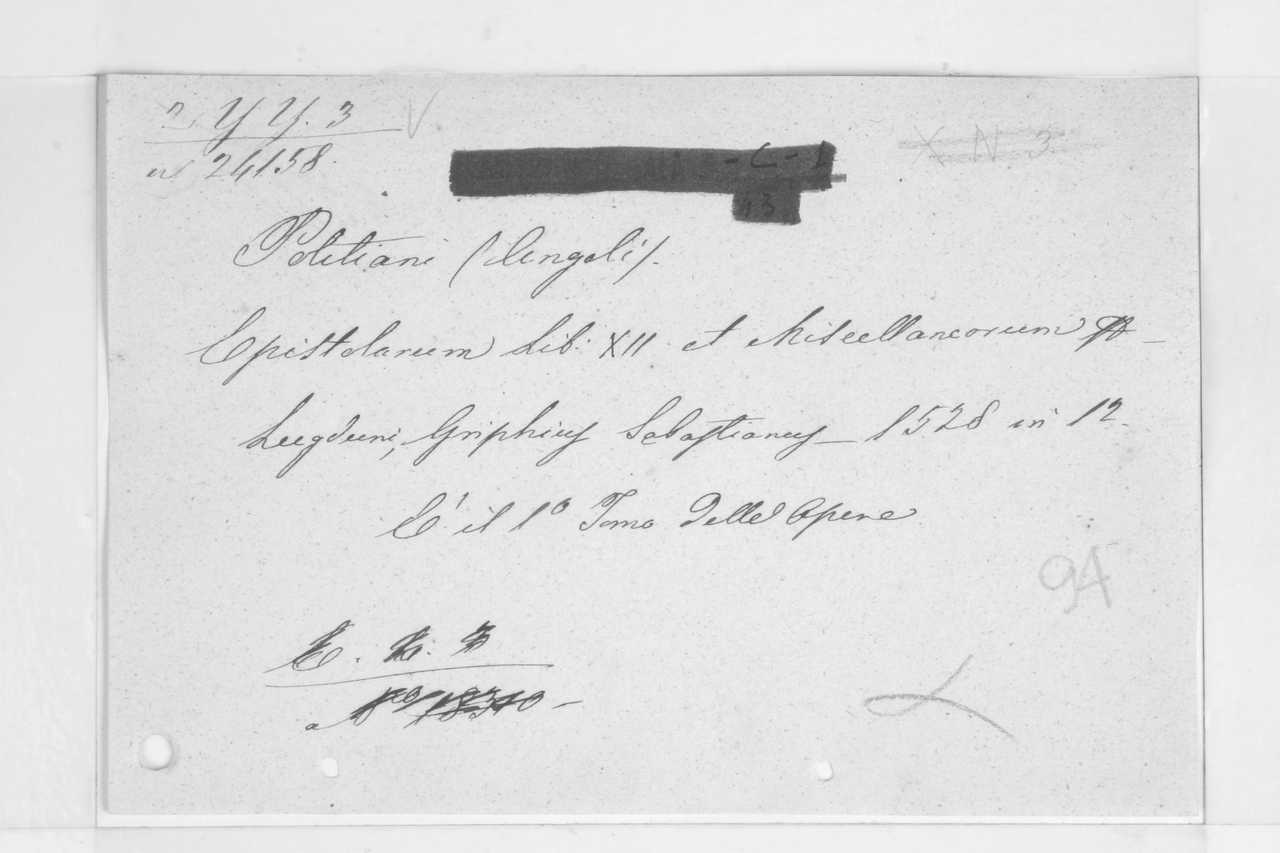 2. Y Y. 3
n° 24158.
X N 3
- C - 1
43
Politiani (Angeli).
Epistolarum Lib: XII et Miscellaneorum
Lugduni, Griphius Sebastianus - 1528 in 12.
E' il 1° Tomo delle Opere
94